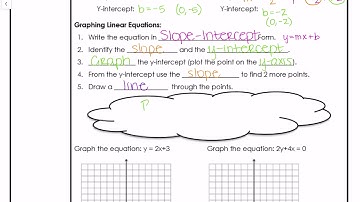 Y-intercept: b=-5 (0,-5) Y-intercept: b=-2
(0,-2)
Graphing Linear Equations:
1. Write the equation in Slope-Intercept Form. y=mx+b
2. Identify the slope and the y-intercept.
3. Graph the y-intercept (plot the point on the y-axis).
4. From the y-intercept use the slope to find 2 more points.
5. Draw a line through the points.
Graph the equation: y = 2x+3 Graph the equation: 2y+4x = 0